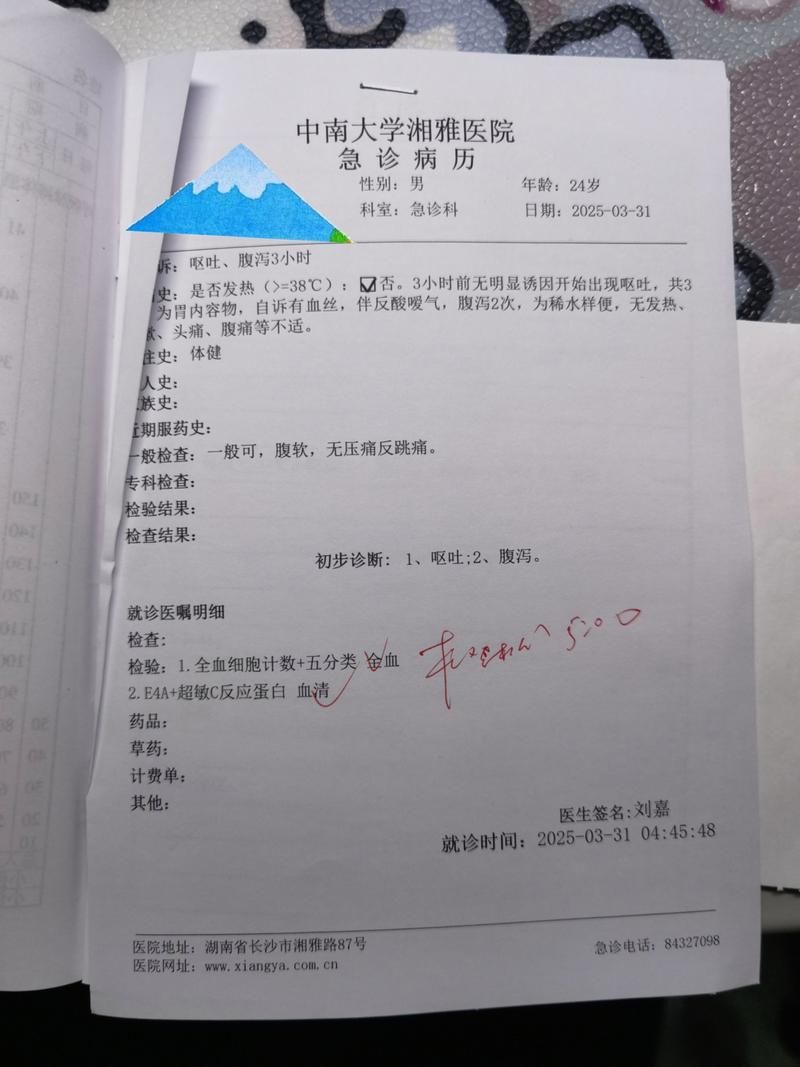 中南大学湘雅医院
急诊病历
性别：男 年龄：24岁
科室：急诊科 日期：2025-03-31
诉：呕吐、腹泻3小时
史：是否发热（>=38℃）：☑否。3小时前无明显诱因开始出现呕吐，共3
为胃内容物，自诉有血丝，伴反酸嗳气，腹泻2次，为稀水样便，无发热、
、头痛、腹痛等不适。
往史：体健
人史：
族史：
近期服药史：
一般检查：一般可，腹软，无压痛反跳痛。
专科检查：
检验结果：
检查结果：
初步诊断：1、呕吐;2、腹泻。
就诊医嘱明细
检查：
检验：1.全血细胞计数+五分类 全血
2.E4A+超敏C反应蛋白 血清
5:00
药品：
草药：
计费单：
其他：
医生签名:刘嘉
就诊时间：2025-03-31 04:45:48
医院地址：湖南省长沙市湘雅路87号 急诊电话：84327098
医院网址：www.xiangya.com.cn